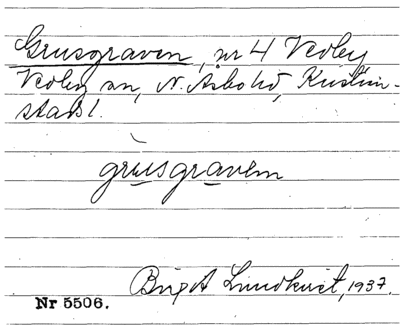 Grusgraven, nr 4 Vedby
Vedby sn, N. Åsbo hd, Kristian-
stads l.
grusgravem
Birgit Lundkvist, 1937.
Nr 5506.